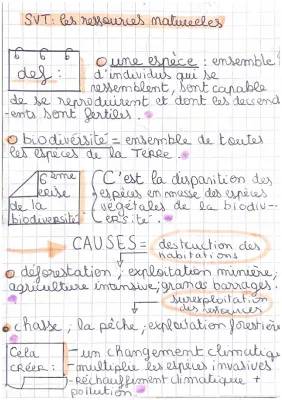 SVT: les ressources naturelles
def:
une espèce : ensemble
d'individus qui se
ressemblent, sont capable
de se reproduirent et dont les descend
-ents sont fertiles.
biodiversité = ensemble de toutes
les espèces de la Terre.
6ème
crise
de la
biodiversité
C'est la disparition des
espèces en masse des espèces
végétales de la biodiv-
ersité.
CAUSES = destruction des
habitations
déforestation, exploitation minière,
agriculture intensive, grands barrages.
surexploitation
des ressources
chasse, la pêche, exploitation forestière
Cela
créer :
- un changement climatique
- multiplie les espèces invasives
- réchauffement climatique +
pollution.